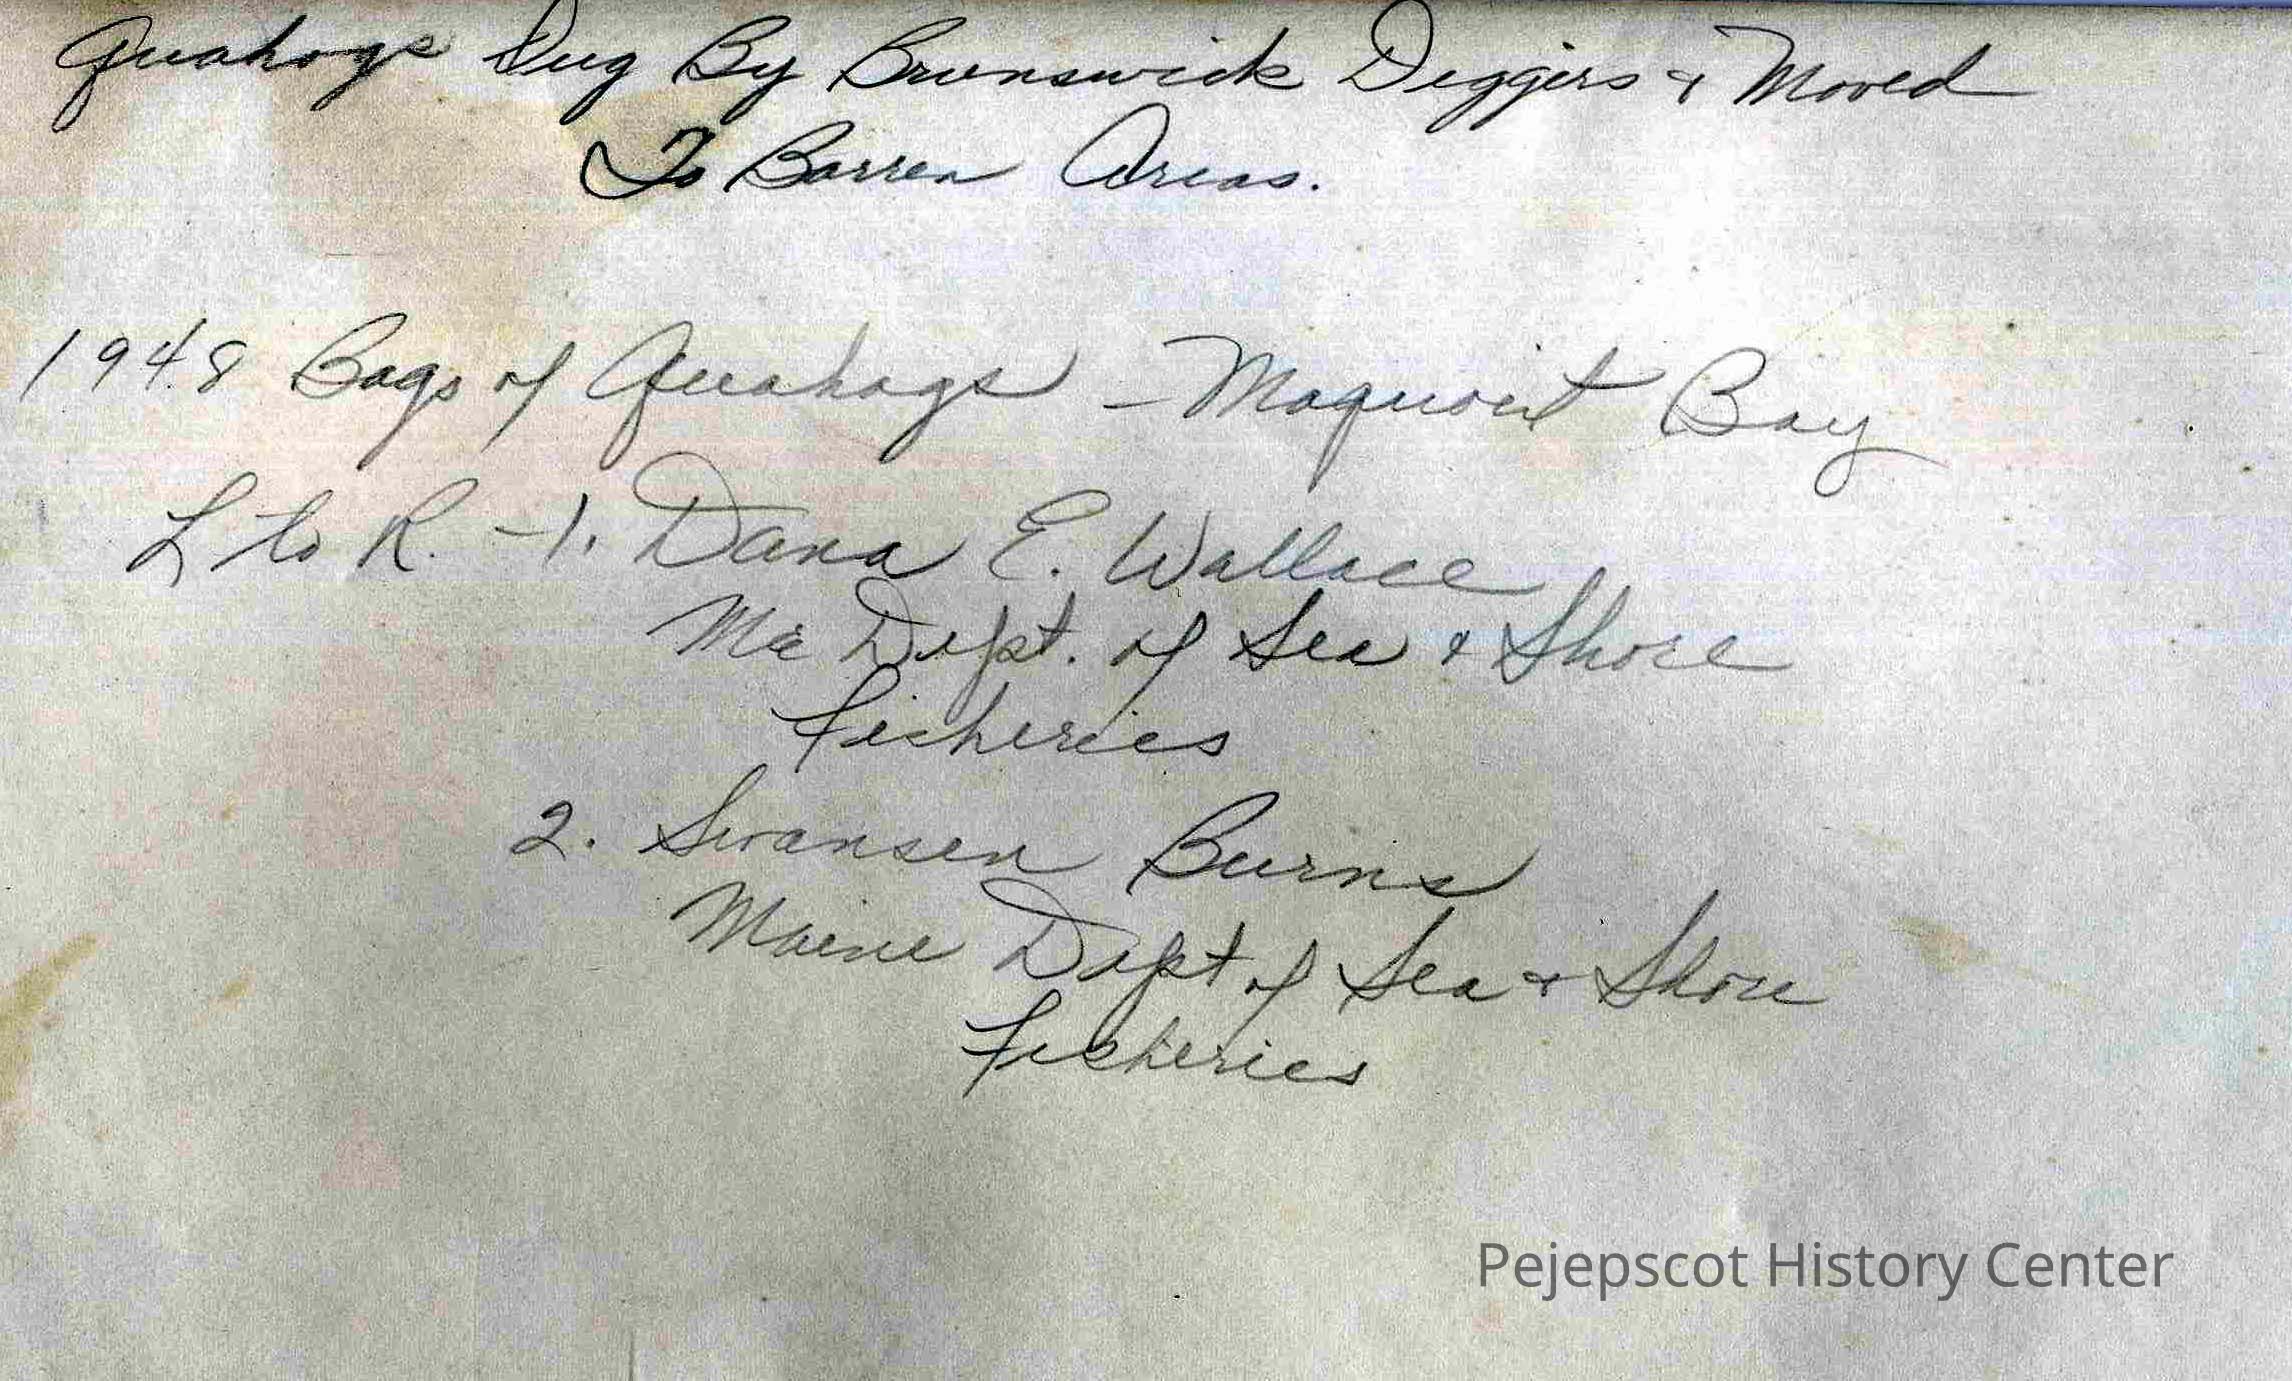 Quahogs Dug By Brunswick Diggers & Moved
To Barren Areas.
1948 Bags of Quahogs - Maquoit Bay
L to R. - 1. Dana E. Wallace
Me Dept. of Sea & Shore
Fisheries
2. Swansen Burns
Maine Dept of Sea & Shore
Fisheries
Pejepscot History Center